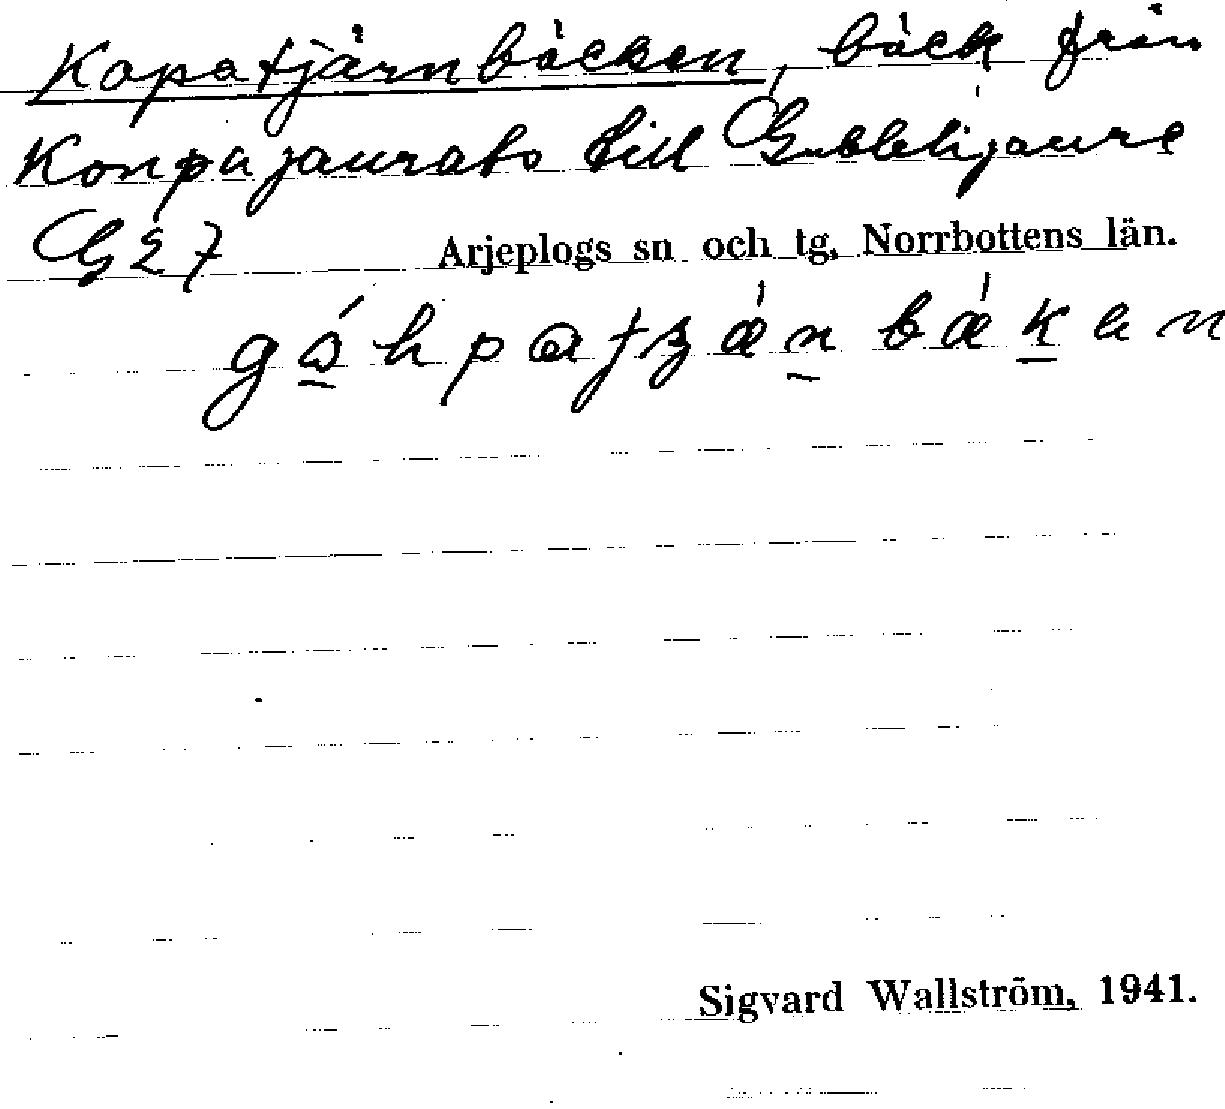 Kopatjärnbäcken, bäck från
Konpajaurats till Gubblijaure
G27 Arjeplogs sn och tg, Norrbottens län.
Sigvard Wallström, 1941.